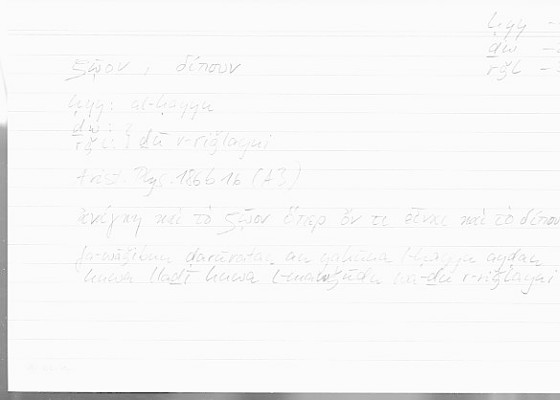 ḥyy
ḏw
rǧl
ζῷον, δίπουν
ḥyy: al-ḥayyu
ḏw:
rǧl: ḏū r-riǧlayni
Arist. Phys. 186b16 (A3)
ἀνάγκη καὶ τὸ ζῷον ὅπερ ὄν τι εἶναι καὶ τὸ δίπουν
fa-wāǧibun ḍarūratan an yakūna l-ḥayyu ayḍan
huwa llaḏī huwa l-mawǧūdu wa-ḏū r-riǧlayni